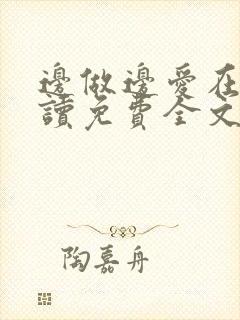 邊做邊愛在
讀免費全文
陶嘉舟